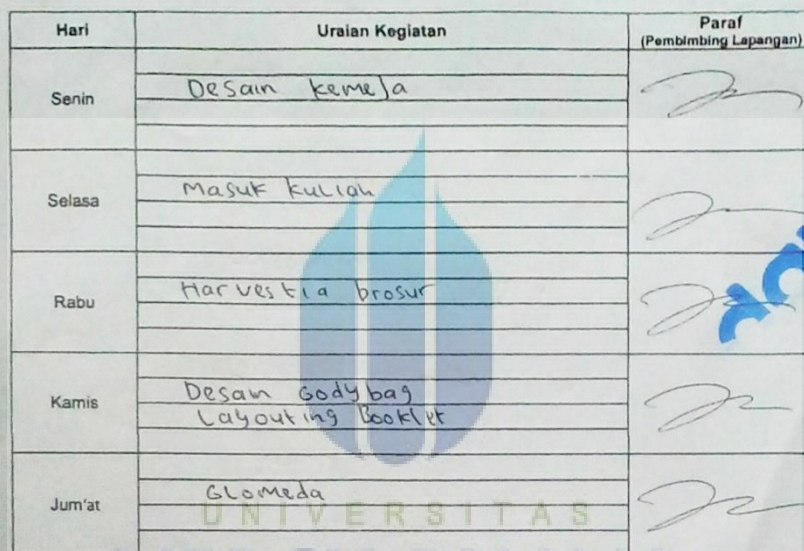 Hari Uraian Kegiatan Paraf
(Pembimbing Lapangan)
Senin
Desain kemeja
Selasa
Masuk kuliah
Rabu
Harvestia brosur
Kamis
Desain Godybag
Layouting Booklet
Jum'at
GLomeda
UNIVERSITAS